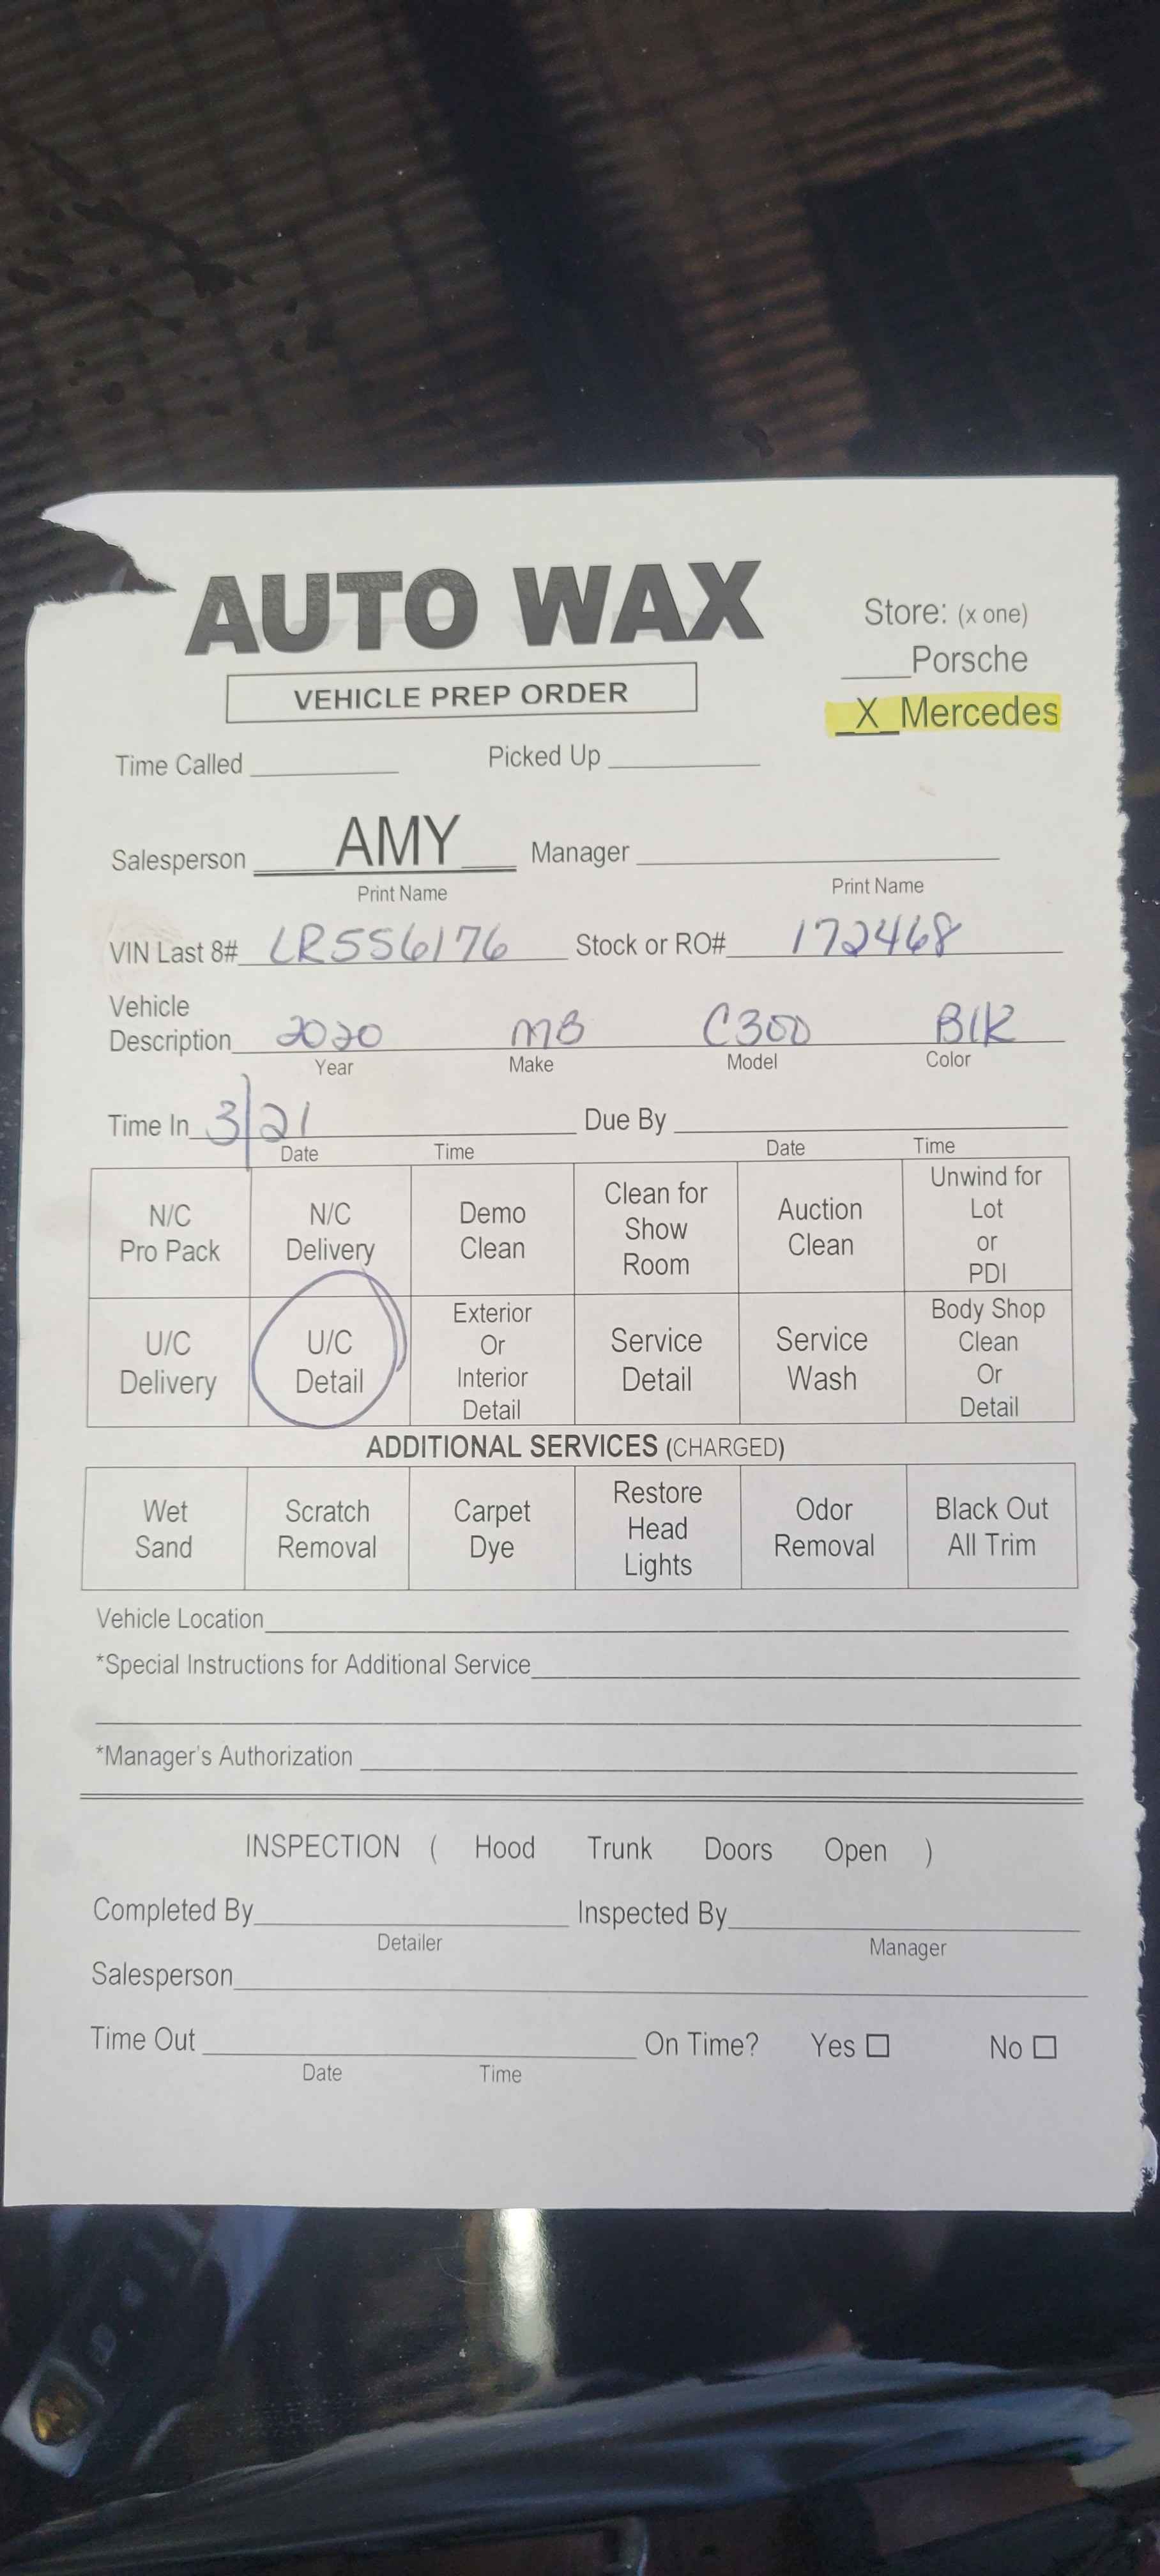 AUTO WAX
VEHICLE PREP ORDER
Store: (x one)
____Porsche
_X_Mercedes
Time Called ________ Picked Up ________
Salesperson ____AMY____ Manager ________
Print Name Print Name
VIN Last 8# LR556176 Stock or RO# 172468
Vehicle
Description 2020 MB C300 Blk
Year Make Model Color
Time In 3/21 Due By ________
Date Time Date Time
N/C Pro Pack N/C Delivery Demo Clean Clean for Show Room Auction Clean Unwind for Lot or PDI
U/C Delivery U/C Detail Exterior Or Interior Detail Service Detail Service Wash Body Shop Clean Or Detail
ADDITIONAL SERVICES (CHARGED)
Wet Sand Scratch Removal Carpet Dye Restore Head Lights Odor Removal Black Out All Trim
Vehicle Location________
*Special Instructions for Additional Service________
*Manager's Authorization ________
INSPECTION ( Hood Trunk Doors Open )
Completed By________ Inspected By________
Detailer Manager
Salesperson________
Time Out ________ On Time? Yes ☐ No ☐
Date Time